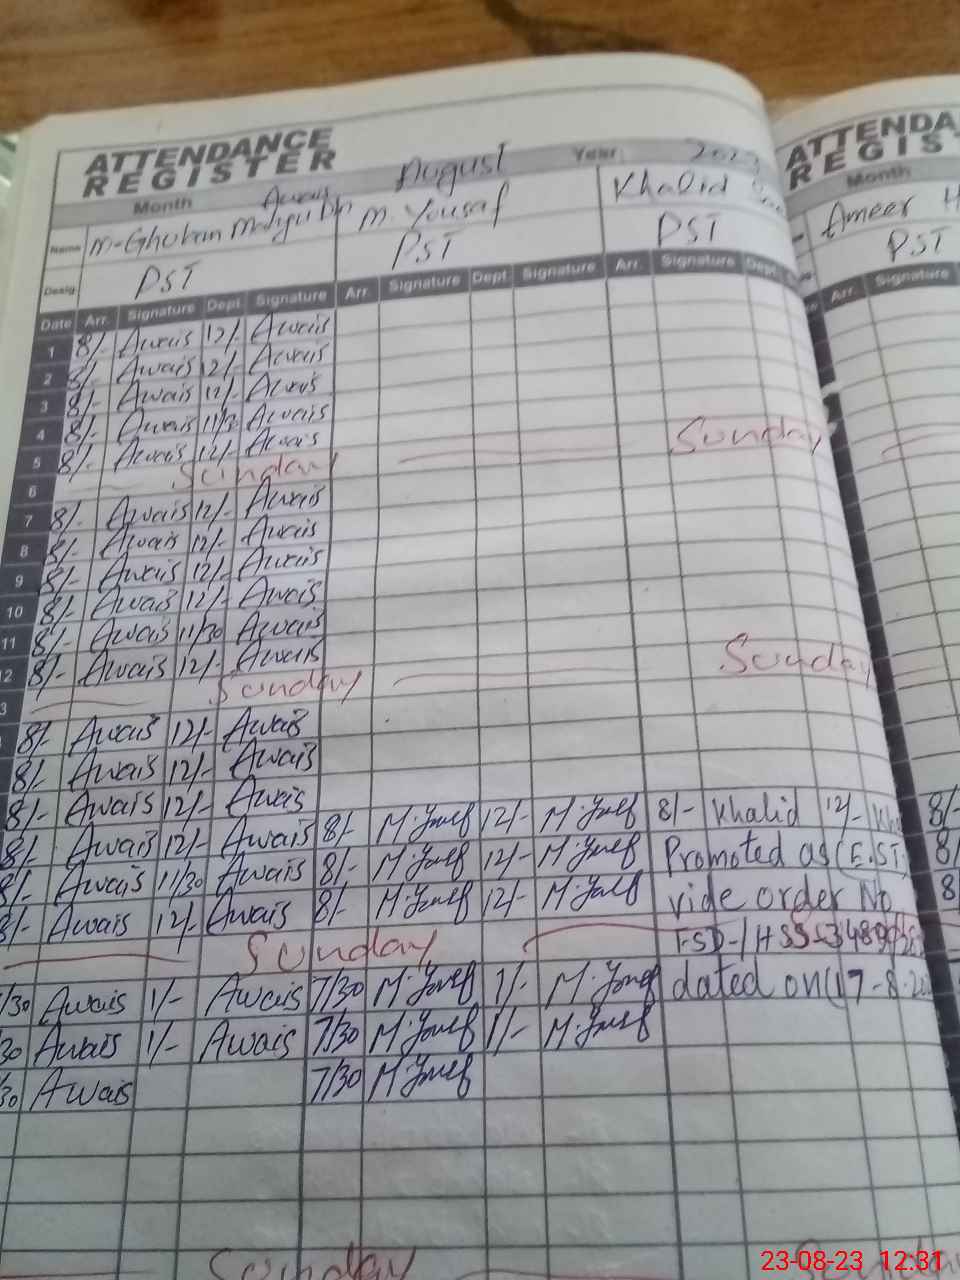 ATTENDANCE
REGISTER
Month August Year 2023
Awais
Name M. Yousaf Khalid
Desig. PST PST PST
Date Arr. Signature Dept. Signature Arr. Signature Dept. Signature Arr. Signature Dept.
1 8/- Awais 12/- Awais
2 8/- Awais 12/- Awais
3 8/- Awais 12/- Awais
4 8/- Awais 11/30 Awais
5 8/- Awais 12/- Awais
6 Sunday Sunday
7 8/- Awais 12/- Awais
8 8/- Awais 12/- Awais
9 8/- Awais 12/- Awais
10 8/- Awais 12/- Awais
11 8/- Awais 11/30 Awais
12 8/- Awais 12/- Awais
3 Sunday Sunday
8/- Awais 12/- Awais
8/- Awais 12/- Awais
8/- Awais 12/- Awais
8/- Awais 12/- Awais 8/- M.Yousf 12/- M.Yousf 8/- Khalid 12/- Kh
8/- Awais 11/30 Awais 8/- M.Yousf 12/- M.Yousf Promoted as (E.ST)
8/- Awais 12/- Awais 8/- M.Yousf 12/- M.Yousf vide order No
Sunday
/30 Awais 1/- Awais 7/30 M.Yousf 1/- M.Yousf dated on (17-8-20
30 Awais 1/- Awais 7/30 M.Yousf 1/- M.Yousf
/30 Awais 7/30 M.Yousf
Sunday
ATTENDA
REGIS
Month
Ameer H
PST
Arr. Signature
8/-
8/
8
23-08-23 12:31